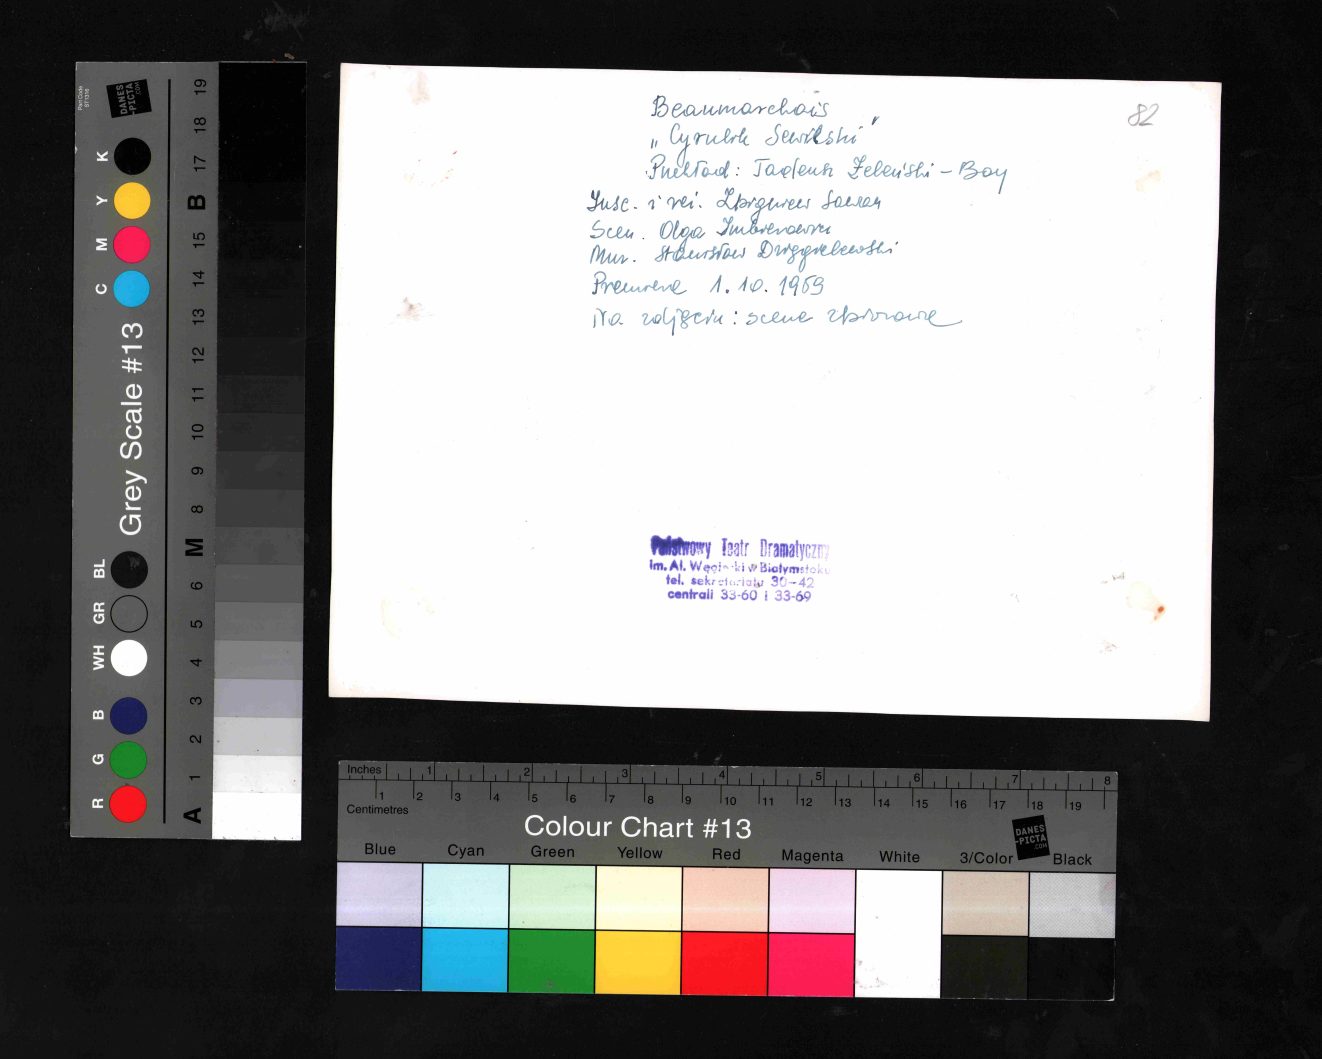 Beaumarchais
„Cyrulik Sewilski"
Przekład: Tadeusz Żeleński-Boy
Insc. i reż. Zbigniew
Scen. Olga
Muz. Stanisław
Premiera 1.10.1969
Na zdjęciu: scena zbiorowa
82
Państwowy Teatr Dramatyczny
im. Al. Węgierki w Białymstoku
tel. sekretariatu 30-42
centrali 33-60 i 33-69
Grey Scale #13
DANES
-PICTA
.COM
K
Y
M
C
BL
GR
WH
B
G
R
19
18
17
B
15
14
13
12
11
10
9
8
M
6
5
4
3
2
1
A
Inches 1 2 3 4 5 6 7 8
Centimetres 1 2 3 4 5 6 7 8 9 10 11 12 13 14 15 16 17 18 19
Colour Chart #13
DANES
-PICTA
.COM
Blue Cyan Green Yellow Red Magenta White 3/Color Black